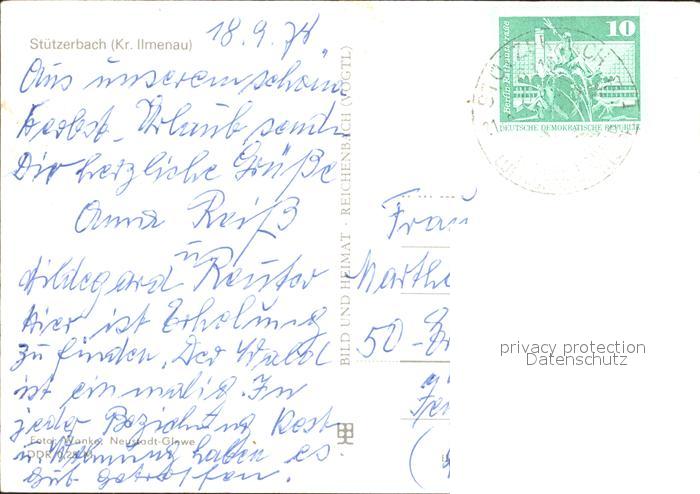 Stützerbach (Kr. Ilmenau)
18.9.78
Aus unserem schön
Herbst-Urlaub sende
Dir herzliche Grüße
Anna Reiß
u.
Hildegard Reuter
Hier ist Erholung
zu finden. Der Wald
ist einmalig. In
jeder Beziehung Kost
u. Wohnung haben es
gut getroffen.
Foto: Wanke, Neustadt-Glewe
DDR
BILD UND HEIMAT · REICHENBACH (VOGTL)
Frau
Marthe
50
10
Berlin-Rathausstraße
DEUTSCHE DEMOKRATISCHE REPUBLIK
privacy protection
Datenschutz